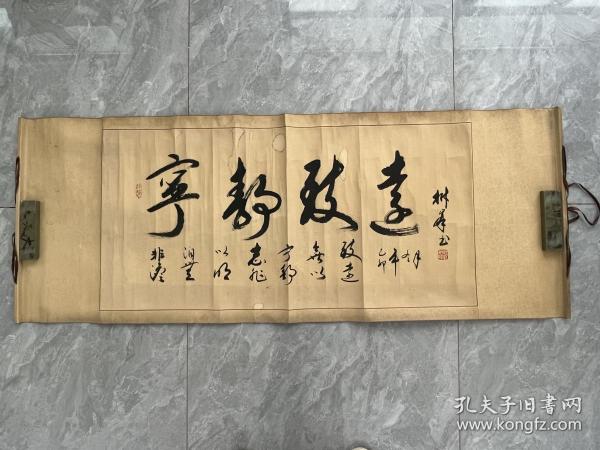 寧靜致遠
非澹
泊無
以明
志非
宁靜
無以
致遠
孔夫子旧书网
www.kongfz.com